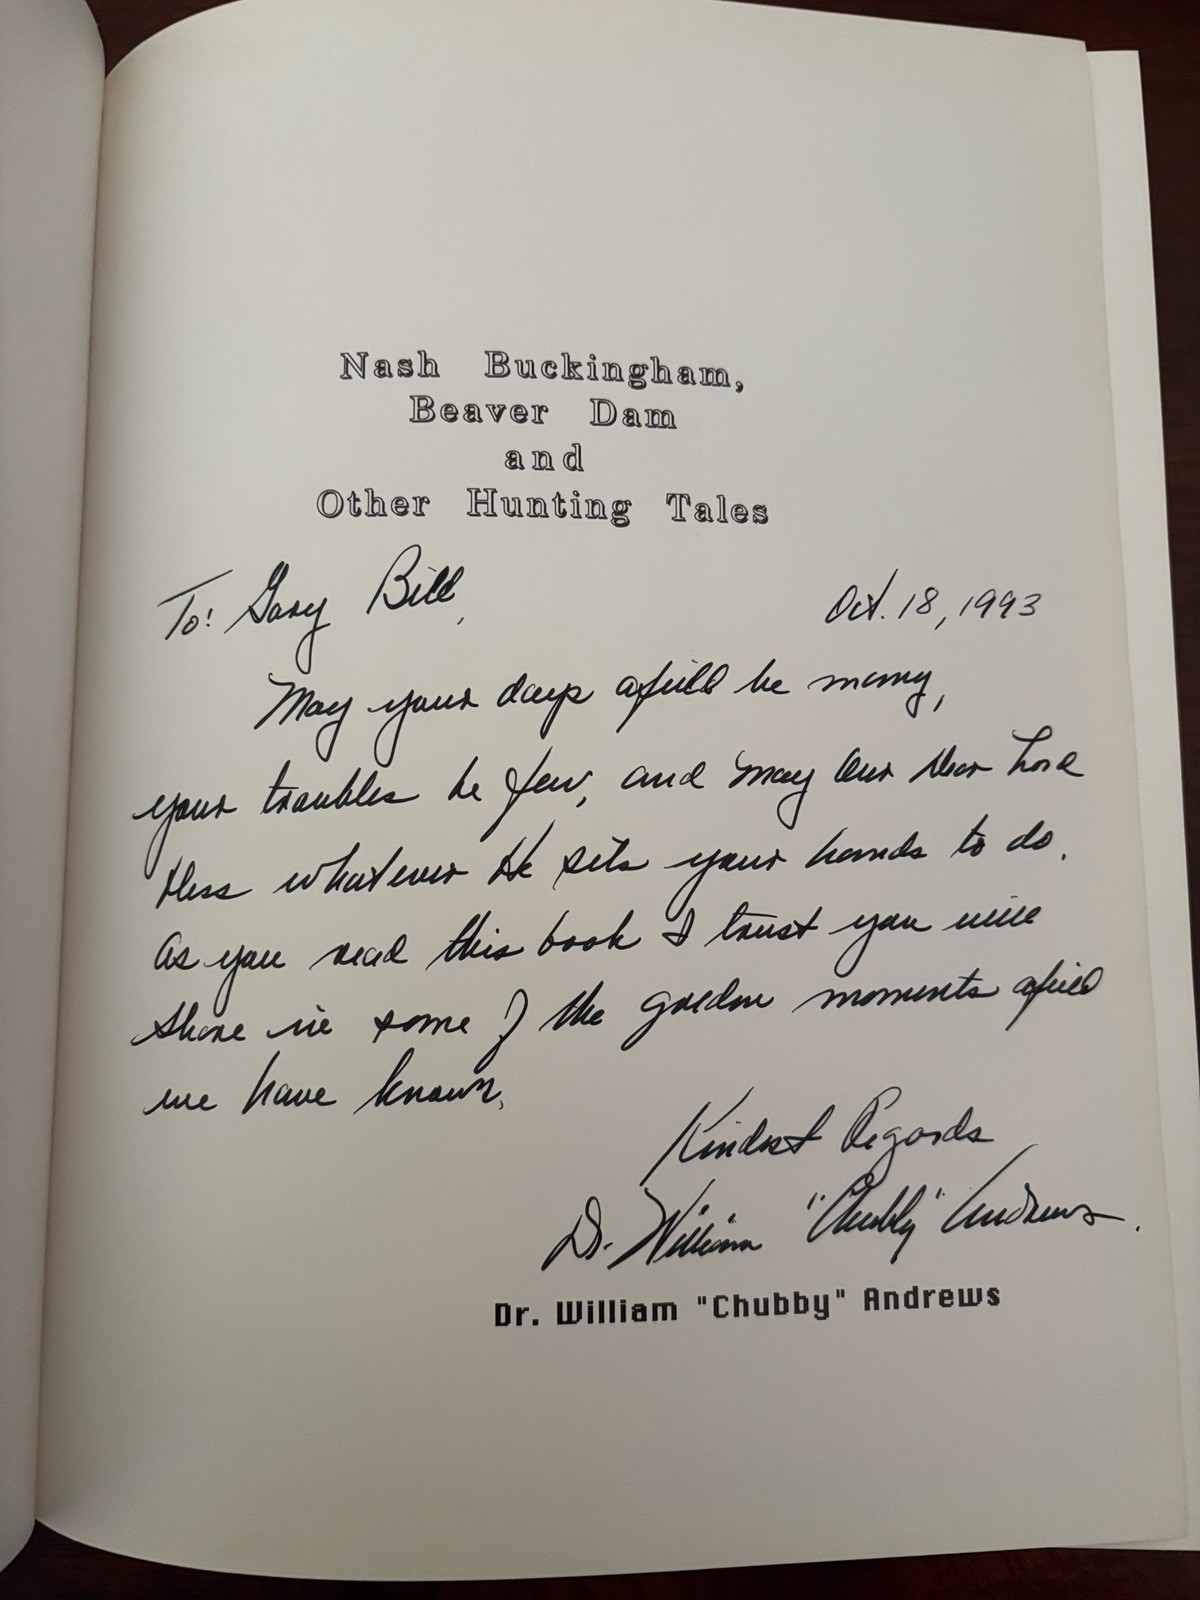 Nash Buckingham,
Beaver Dam
and
Other Hunting Tales
To: Gary Bill,
Oct. 18, 1993
May your days afield be many,
your troubles be few, and may Our Dear Lord
bless whatever He sets your hands to do.
As you read this book I trust you will
share in some of the golden moments afield
we have known.
Kindest Regards
Dr. William "Chubby" Andrews.
Dr. William "Chubby" Andrews